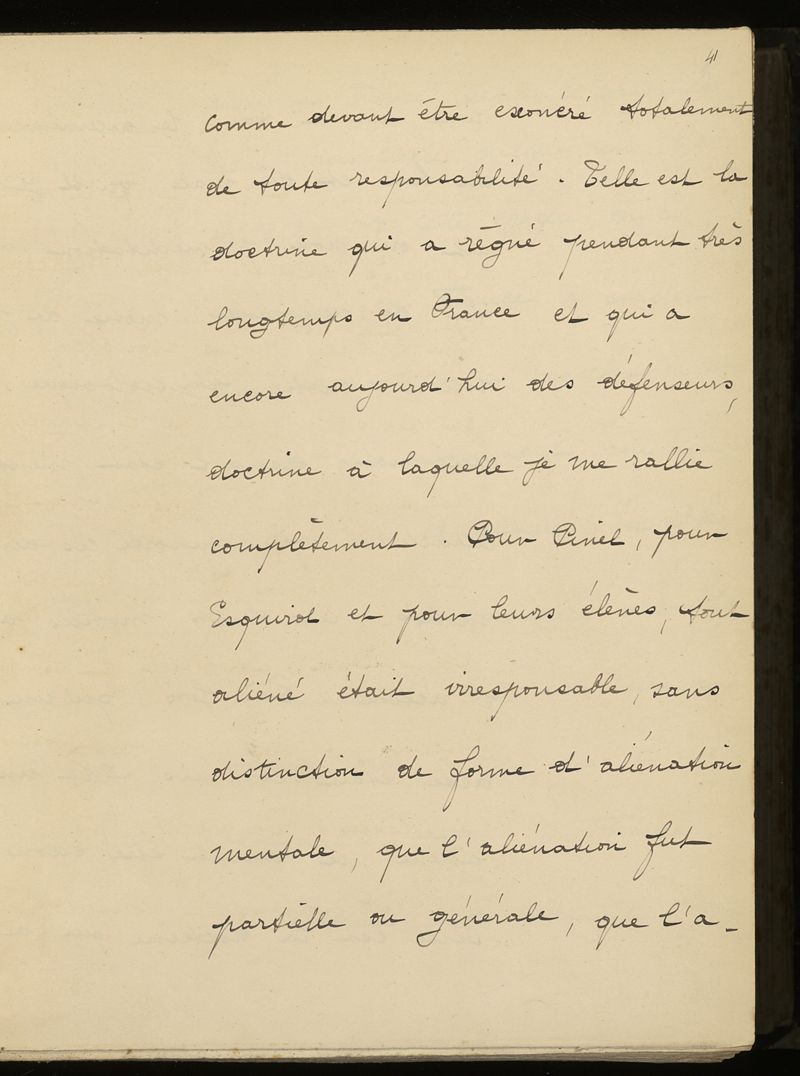 41
comme devant être exonéré totalement
de toute responsabilité. Telle est la
doctrine qui a régné pendant très
longtemps en France et qui a
encore aujourd'hui des défenseurs,
doctrine à laquelle je me rallie
complètement. Pour Pinel, pour
Esquirol et pour leurs élèves, tout
aliéné était irresponsable, sans
distinction de forme d'aliénation
mentale, que l'aliénation fut
partielle ou générale, que l'a-